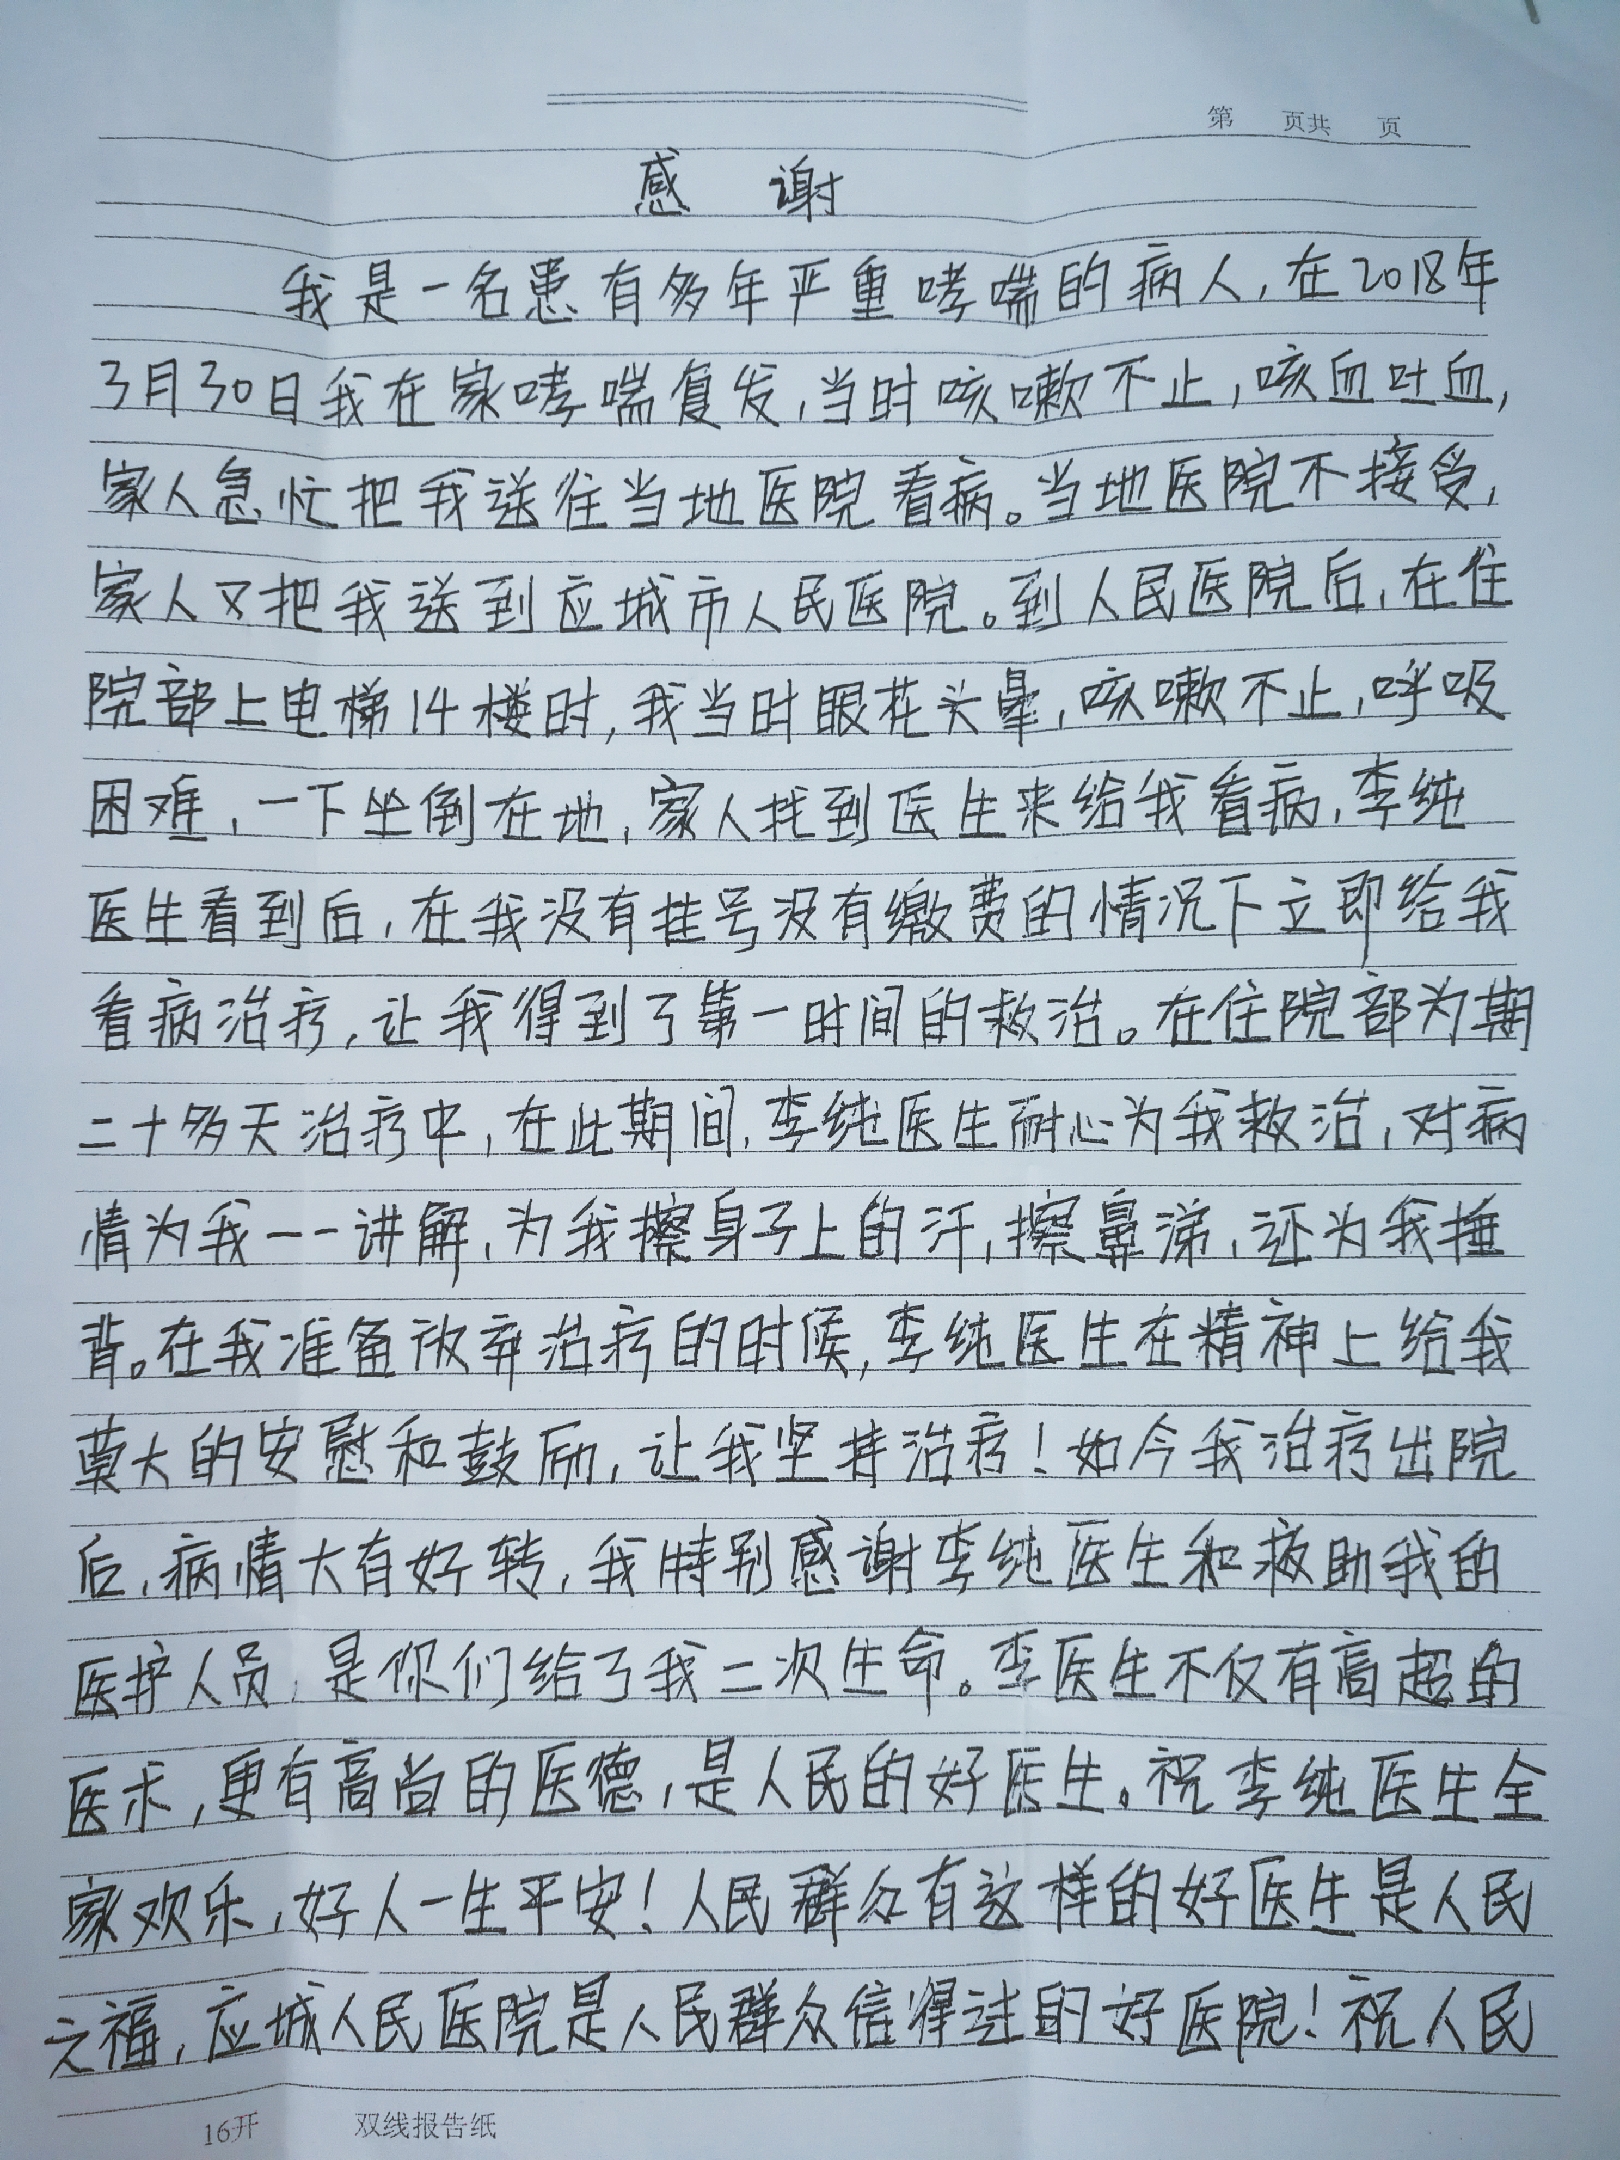 第 页共 页
感 谢
我是一名患有多年严重哮喘的病人,在2018年
3月30日我在家哮喘复发,当时咳嗽不止,咳血吐血,
家人急忙把我送往当地医院看病。当地医院不接受,
家人又把我送到应城市人民医院。到人民医院后,在住
院部上电梯14楼时,我当时眼花头晕,咳嗽不止,呼吸
困难,一下坐倒在地,家人找到医生来给我看病,李纯
医生看到后,在我没有挂号没有缴费的情况下立即给我
看病治疗,让我得到了第一时间的救治。在住院部为期
二十多天治疗中,在此期间,李纯医生耐心为我救治,对病
情为我一一讲解,为我擦身子上的汗,擦鼻涕,还为我捶
背。在我准备放弃治疗的时候,李纯医生在精神上给我
莫大的安慰和鼓励,让我坚持治疗!如今我治疗出院
后,病情大有好转,我特别感谢李纯医生和救助我的
医护人员,是你们给了我二次生命。李医生不仅有高超的
医术,更有高尚的医德,是人民的好医生。祝李纯医生全
家欢乐,好人一生平安!人民群众有这样的好医生是人民
之福,应城人民医院是人民群众信得过的好医院!祝人民
16开 双线报告纸